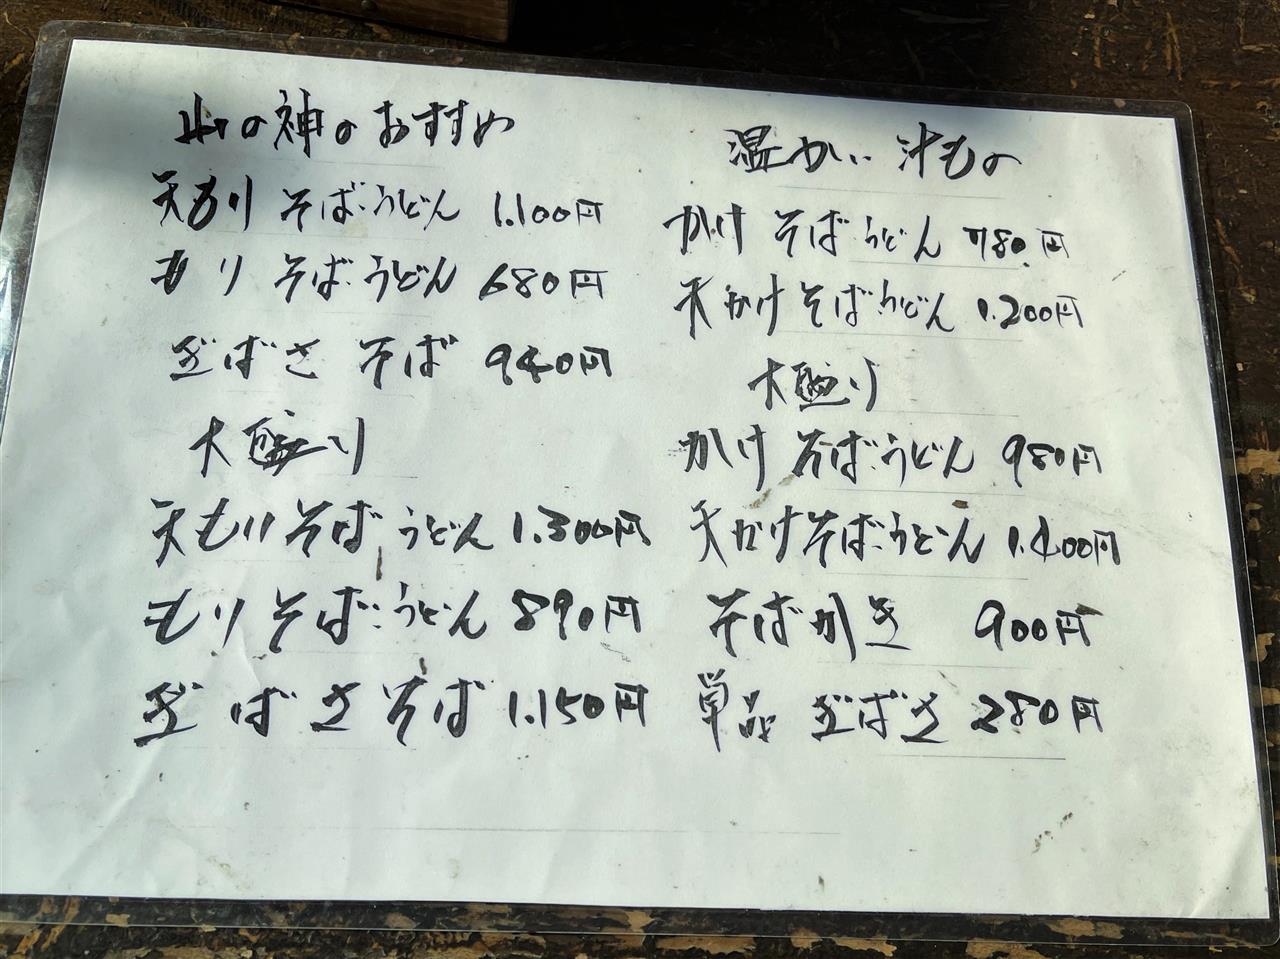 山の神のおすすめ
天もり そば・うどん 1.100円
もり そば・うどん 680円
ぎばさ そば 940円
大盛り
天もり そば うどん 1.300円
もり そば・うどん 890円
ぎばさ そば 1.150円
温かい 汁もの
かけ そば うどん 780円
天かけ そば・うどん 1.200円
大盛り
かけ そば・うどん 980円
天かけ そば・うどん 1.400円
そばがき 900円
単品 ぎばさ 280円